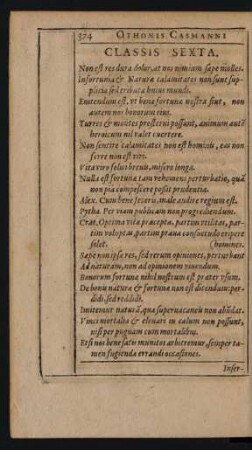 374 OTHONIS CASMANNI
CLASSIS SEXTA.
Non est res dura dolor, at nos nimium sæpe molles.
Infortunia & Naturæ calamitates non sunt sup-
plicia sed tributa huius mundi.
Enitendum est, vt bona fortuna nostra sint, non
autem nos bonorum eius.
Turres & montes prosterni possunt, animum autē
heroicum nil valet euertere.
Non sentire calamitates non est hominis, eas non
ferre nim est viri.
Vita viro felici breuis, misero longa.
Nulla est fortunæ tam vehemens perturbatio, quā
non pia compescere possit prudentia.
Alex. Cum bene feceris, male audire regium est.
Pytha. Per viam publicam non progrediendum.
Crat. Optima vitæ præcepta, partim vtilitas, par-
tim voluptas, partim praua consuetudo eripere
solet. (homines.
Sæpe non ipsæ res, sed rerum opiniones, perturbant
Ad naturam, non ad opinionem viuendum.
Bonorum fortunæ nihil nostrum est præter vsum.
De bonis naturæ & fortunæ non est dicendum: per-
didi, sed reddidi.
Imitemur naturā, qua superuacaneis non abūdat.
Vinci mortalia & eleuari in cælum non possunt,
nisi per pugnam cum mortalibus.
Etsi nos bene satis munitos arbitremur, semper ta-
men fugienda errandi occasiones.
Inser-